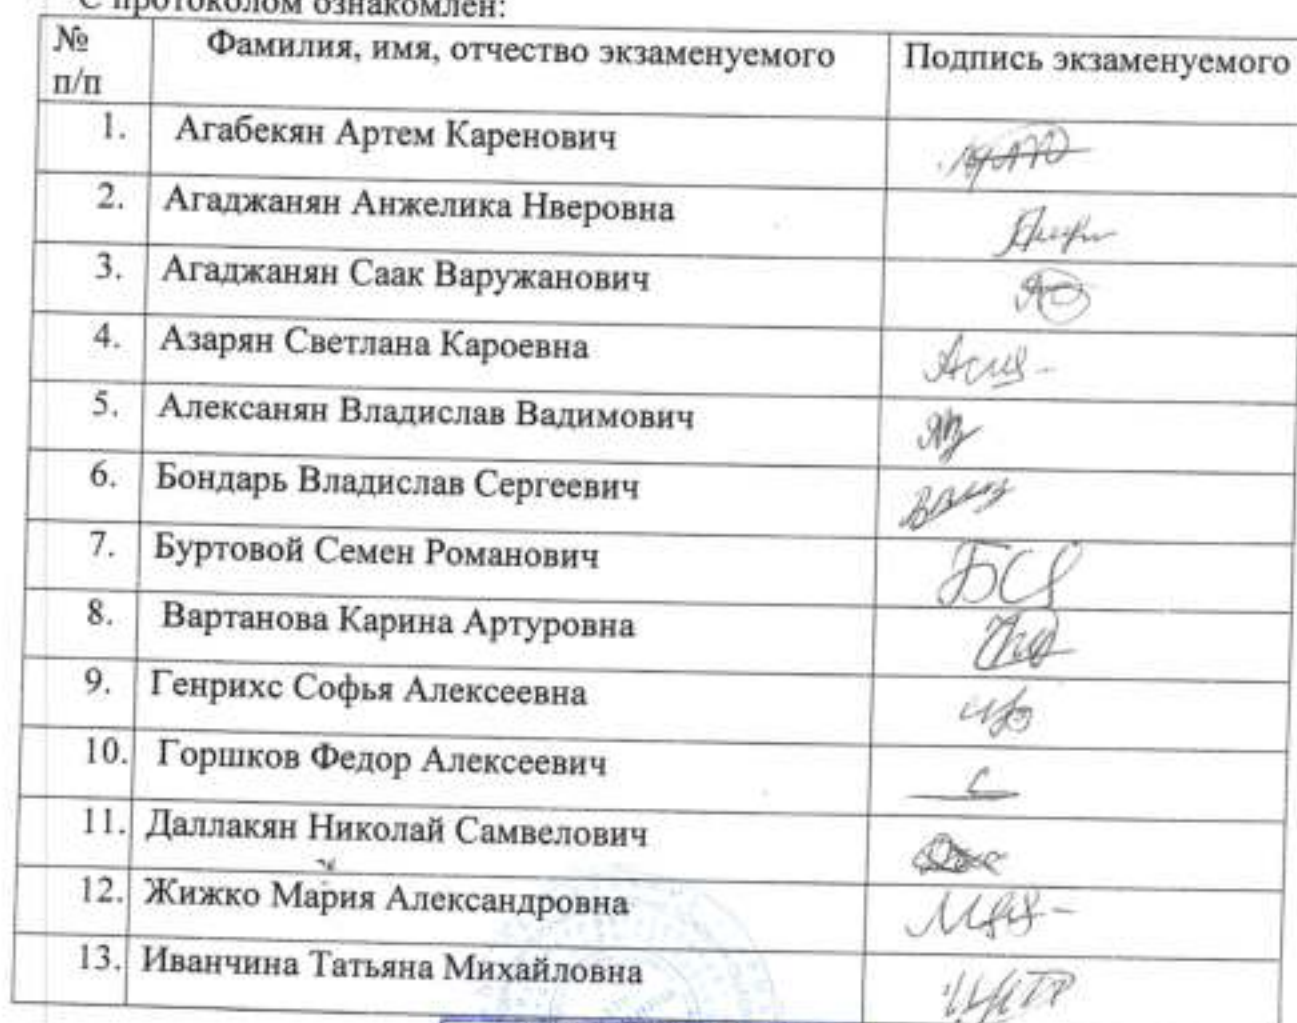 С протоколом ознакомлен:
№ п/п Фамилия, имя, отчество экзаменуемого Подпись экзаменуемого
1. Агабекян Артем Каренович
2. Агаджанян Анжелика Нверовна
3. Агаджанян Саак Варужанович
4. Азарян Светлана Кароевна
5. Алексанян Владислав Вадимович
6. Бондарь Владислав Сергеевич
7. Буртовой Семен Романович
8. Вартанова Карина Артуровна
9. Генрихс Софья Алексеевна
10. Горшков Федор Алексеевич
11. Даллакян Николай Самвелович
12. Жижко Мария Александровна
13. Иванчина Татьяна Михайловна